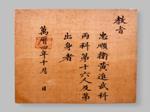 敎旨
忠順衛黃進武科
丙科第十六人及第
出身者
萬曆四年十月 日